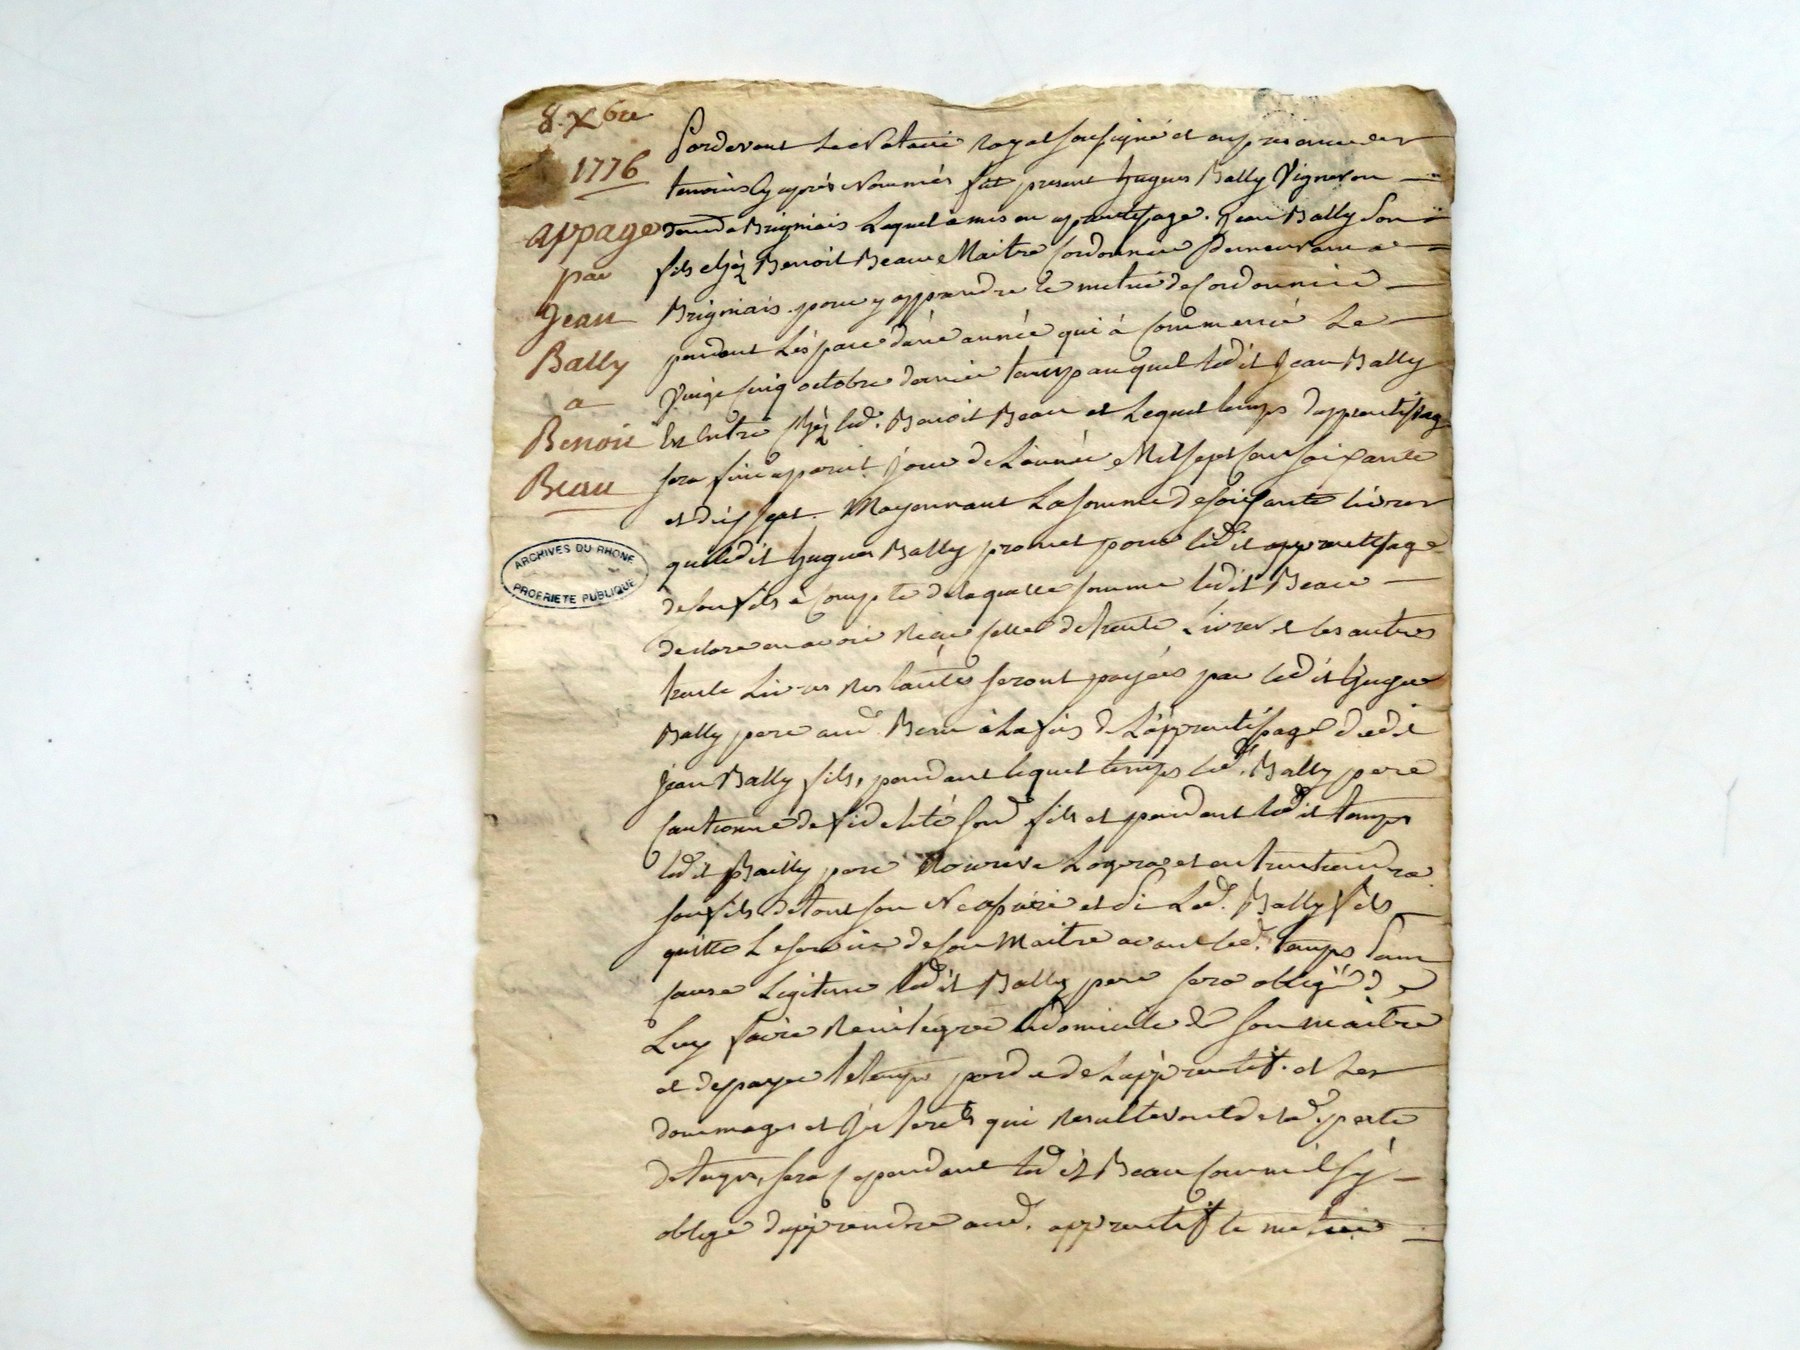 8. Xbre
1776
appage
par
Jean
Bally
a
Benoit
Beau
ARCHIVES DU RHONE
PROPRIETE PUBLIQUE
Pardevant Le Notaire Royal soussigné et en presence des
temoins Cy après Nommés fut present hugues Bally Vigneron
de Brignais Lequel a mis en apprentissage Jean Bally Son
fils chéz Benoit Beau Maitre Cordonnier Demeurant a
Brignais pour y apprendre le metié de Cordonnié
pendant L'éspace d'une année qui à Commencé Le
Vingt Cinq octobre dernier temps auquel ledit Jean Bally
Est Entré Chéz led. Benoit Beau et Lequel temps d'apprentissage
sera fini a pareil jour de L'année Mil sept Cent soixante
et dix sept. Moyennant La somme de soixante livres
que ledit hugues Bally promet pour ledit apprentissage
de son fils a Compte de laquelle somme ledit Beau
declare en avoir Reçu Celle de trente Livres et les autres
trente Livres Restantes seront payées par ledit hugues
Bally pere aud. Beau à La fin de L'apprentissage dudit
Jean Bally fils, pendant lequel temps led. Bally pere
Cautionne de fidelité sond. fils et pendant ledit temps
ledit Bailly pere Nourira Logera et entretiendra
son fils de tout son Necessaire et Si Led. Bally fils
quitte Le service de son Maitre avant led. temps Sans
cause Legitime ledit Bally pere sera obligé de
Luy faire Reintegrer le domicile de son maitre
et de payer le temps perdu de L'apprentif et Les
dommages et Interets qui Resulteront de lad. perte
de temps, sera Cependant ledit Beau Comme il s'y
oblige d'apprendre aud. apprentif le metier